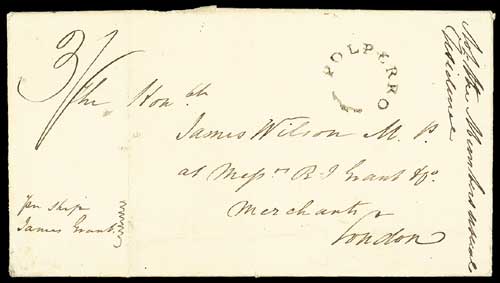 3/
POLPERRO
The Hon.ble
James Wilson M. P.
at Messrs R I Grant & Co.
Merchants
London
per ship
James Grant
Not the Members usual
residence